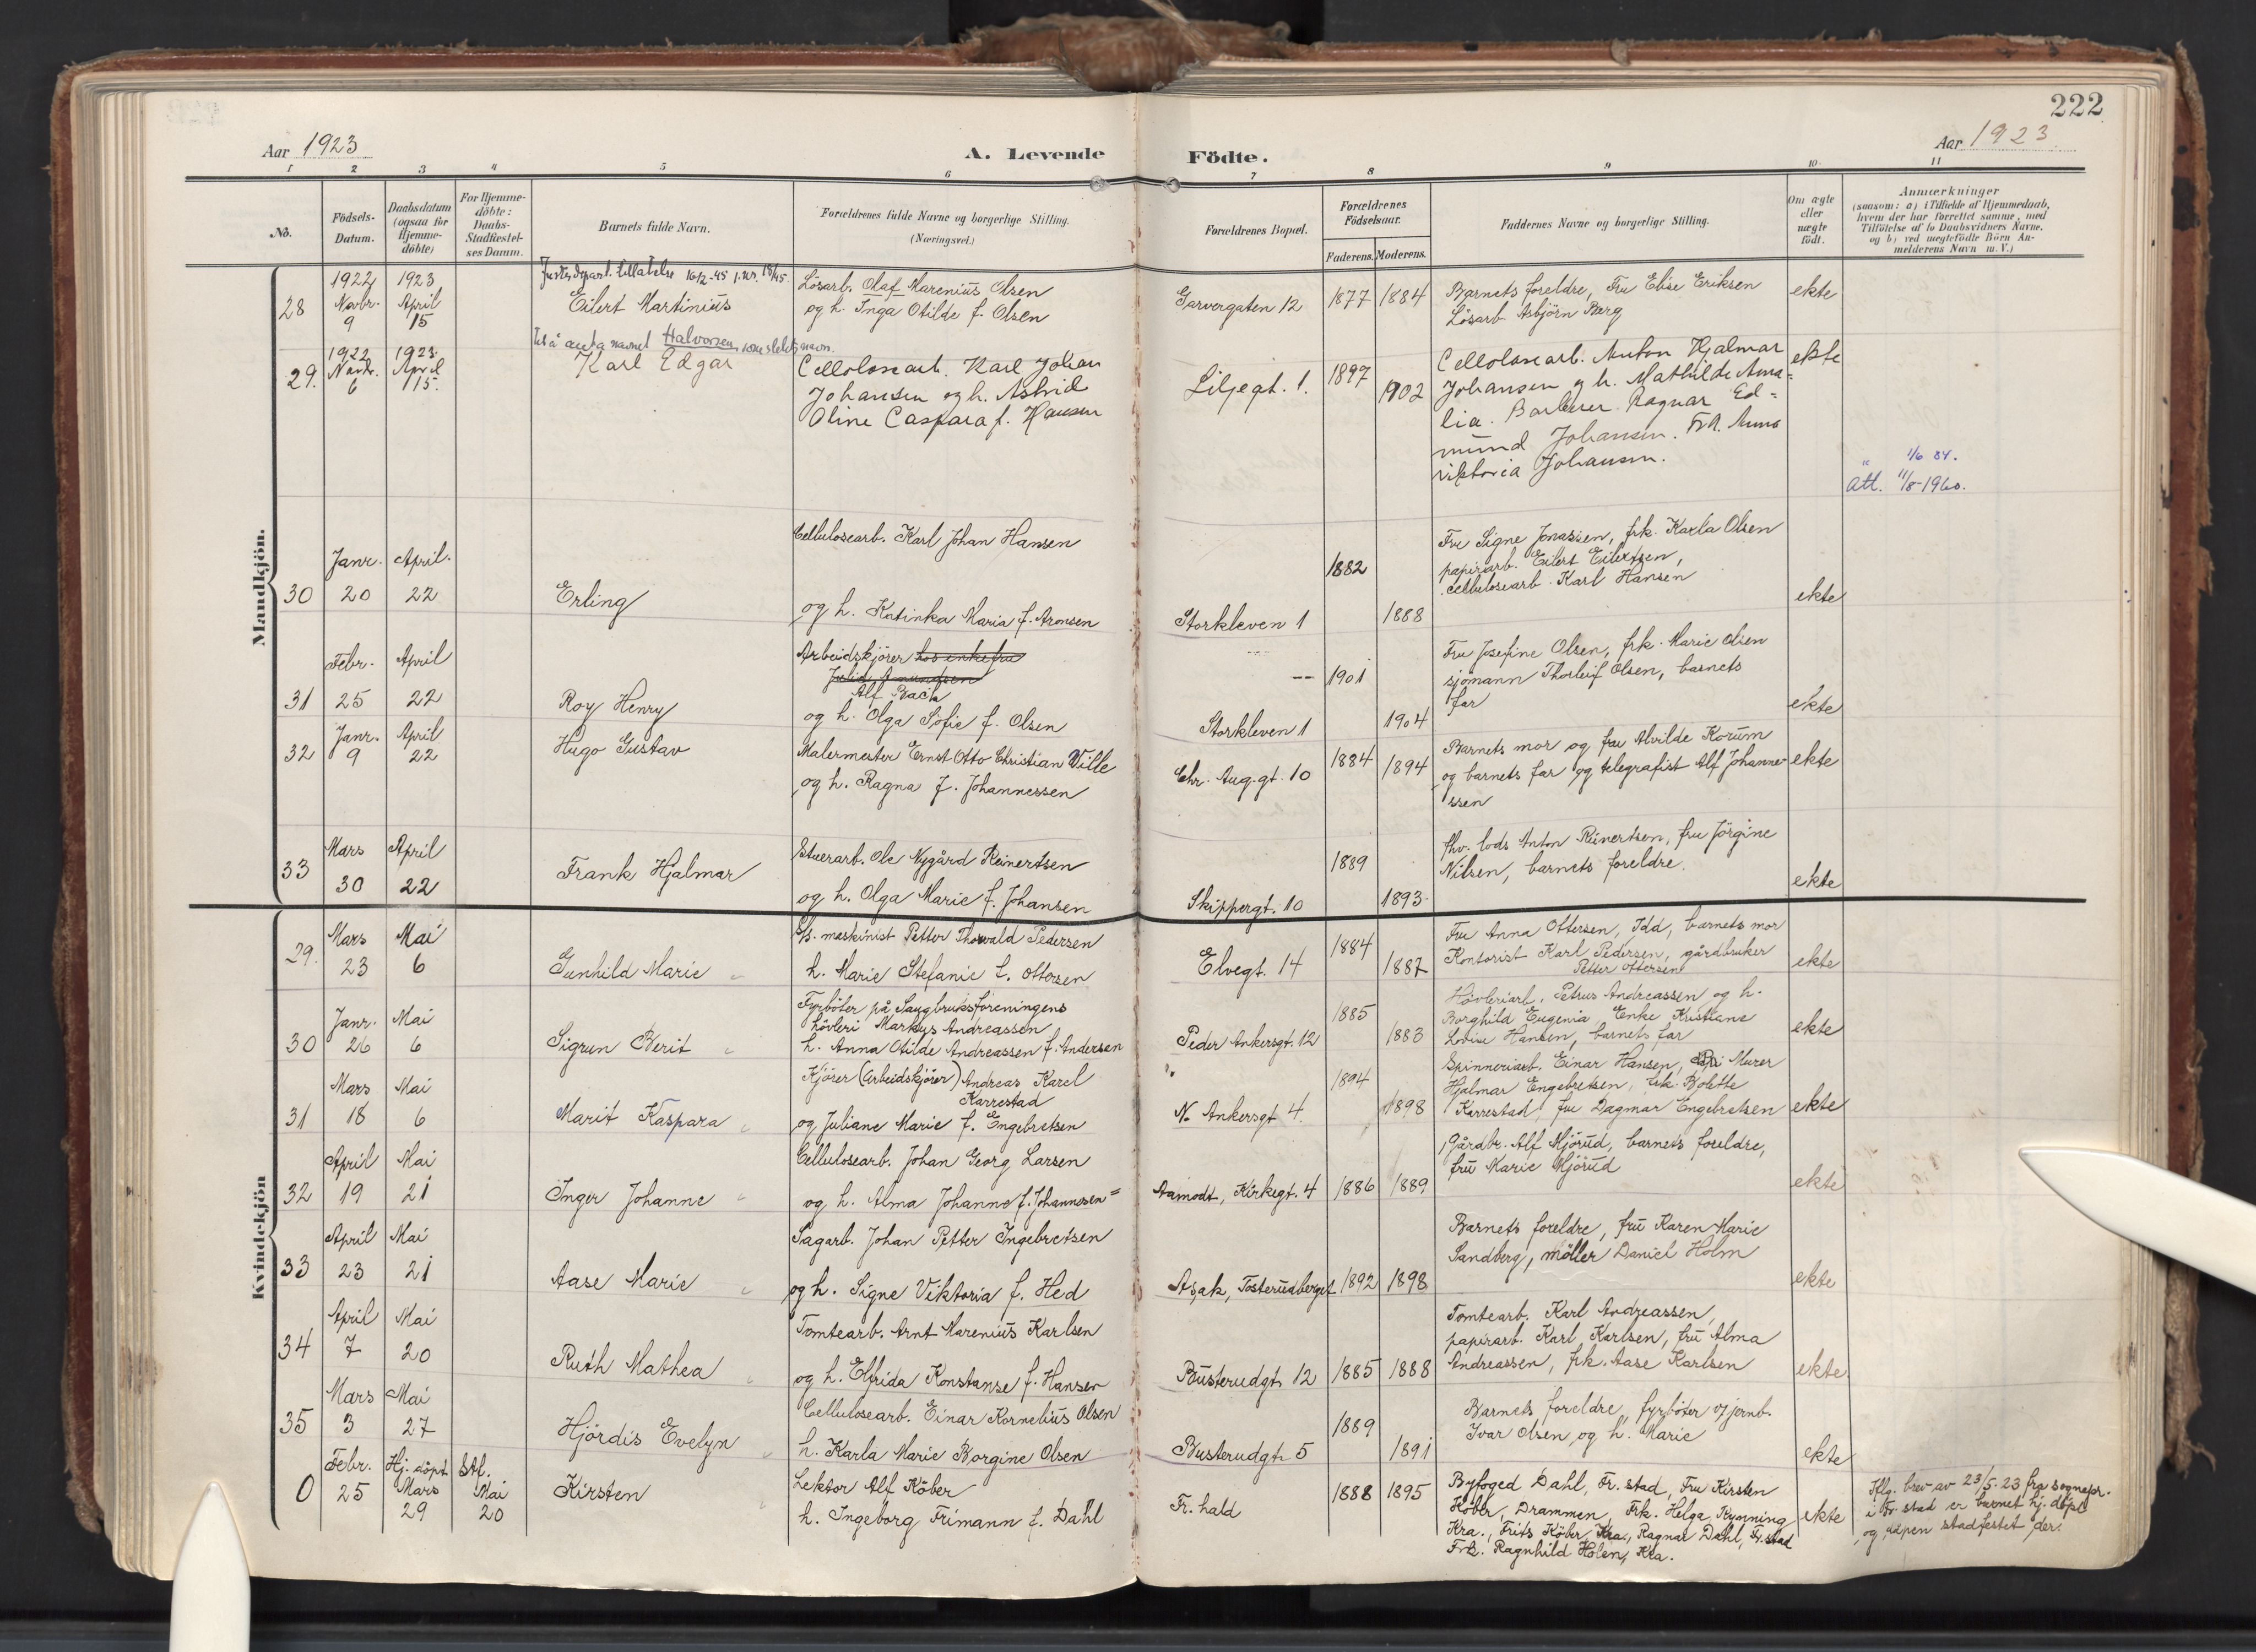 222
Aar 1923
A. Levende Födte.
Aar 1923
1 2 3 4 5 6 7 8 9 10 11
No.
Födsels-
Datum.
Daabsdatum
(ogsaa for
Hjemme-
döbte)
For Hjemme-
döbte:
Daabs-
Stadfæstel-
ses Datum.
Barnets fulde Navn.
Forældrenes fulde Navne og borgerlige Stilling.
(Næringsvei.)
Forældrenes Bopæl.
Forældrenes
Födselsaar.
Faderens. Moderens.
Faddernes Navne og borgerlige Stilling.
Om ægte
eller
uægte
födt.
Anmærkninger
(saasom: a) i Tilfælde af Hjemmedaab,
hvem der har forrettet samme, med
Tilföielse af to Daabsvidners Navne,
og b) ved uægtefödte Börn An-
melderens Navn m. V.)
Mandkjön.
28
1922
Novbr.
9
1923
April
15
Justisdepart. tillatelse 16/2-45 j.nr. 18/45
Eilert Martinius
til å anta navnet Halvorsen som slektsnavn.
Lösarb. Olaf Marenius Olsen
og h. Inga Otilde f. Olsen
Garvergaten 12
1877 1884
Barnets foreldre, Fru Elise Eriksen
Lösarb. Asbjörn Berg
ekte
29.
1922
Novbr.
6
1923
April
15.
Karl Edgar
Cellolosearb. Karl Johan
Johansen og h. Astrid
Oline Caspara f. Hansen
Liljegt. 1.
1897
1902
Cellolosearb. Anton Hjalmar
Johansen og h. Mathilde Ama=
lia. Barberer Ragnar Ed=
mund Johansen. Frk. Anna
Viktoria Johansen.
ekte
" 1/6 84.
Att. 11/8-1960.
30
Janr.
20
April.
22
Erling
Cellulosearb. Karl Johan Hansen
og h. Katinka Maria f. Aronsen
Storkleven 1
1882
1888
Fru Signe Jonassen, frk. Karla Olsen
papirarb. Eilert Eilertsen,
cellulosearb. Karl Hansen
ekte
31
Febr.
25
April
22
Roy Henry
Arbeidskjörer hos enkefru
Julie Amundsen
Alf Bach
og h. Olga Sofie f. Olsen
Storkleven 1
-- 1901
1904
Fru Josefine Olsen, frk. Marie Olsen
sjömann Thorleif Olsen, barnets
far
ekte
32
Janr.
9
April
22
Hugo Gustav
Malermester Ernst Otto Christian Ville
og h. Ragna f. Johannessen
Chr. Aug. gt. 10
1884
1894
Barnets mor og fru Alvilde Korum
og barnets far og telegrafist Alf Johanne-
ssen
ekte
33
Mars
30
April
22
Frank Hjalmar
Stuerarb. Ole Nygård Reinertsen
og h. Olga Marie f. Johansen
Skippergt. 10
1889
1893
fhv. lods Anton Reinertsen, fru Jörgine
Nilsen, barnets foreldre.
ekte
Kvindekjön
29.
Mars
23
Mai
6
Gunhild Marie
S/S. maskinist Petter Thorvald Pedersen
h. Marie Stefanie f. Ottersen
Elvegt. 14
1884
1887
Fru Anna Ottersen, Idd, barnets mor
Kontorist Karl Pedersen, gårdbruker
Petter Ottersen
ekte
30
Janr.
26
Mai
6
Sigrun Berit
Fyrböter på Saugbruksforeningens
hövleri Markus Andreassen
h. Anna Otilde Andreassen f. Andersen
Peder Ankersgt. 12
1885
1883
Hövleriarb. Petrus Andreassen og h.
Borghild Eugenia, Enke Kristiane
Lovise Hansen, barnets far
ekte
31
Mars
18
Mai
6
Marit Kaspara
Kjörer (arbeidskjörer) Andreas Karel
Karrestad
og Juliane Marie f. Engebretsen
N. Ankersgt 4.
1894
1898
Spinneriarb. Einar Hansen, Murer
Hjalmar Engebretsen, frk. Bolette
Karrestad, fru Dagmar Engebretsen
ekte
32
April
19
Mai
21
Inger Johanne
Cellulosearb. Johan Georg Larsen
og h. Alma Johanne f. Johannesen
Aamodt, Kirkegt. 4
1886 1889
Gårdbr. Alf Mjörud, barnets foreldre,
fru Marie Mjörud
ekte
33
April
23
Mai
21
Aase Marie
Sagarb. Johan Petter Ingebretsen
og h. Signe Viktoria f. Hed
Asak, Tosterudberget
1892 1898
Barnets foreldre, fru Karen Marie
Sandberg, möller Daniel Holm
ekte
34
April
7
Mai
20
Ruth Mathea
Tomtearb. Arnt Marenius Karlsen
og h. Elfrida Konstanse f. Hansen
Busterudgt. 12
1885 1888
Tomtearb. Karl Andreassen,
papirarb. Karl Karlsen, fru Alma
Andreassen, frk. Aase Karlsen
ekte
35
Mars
3
Mai
27
Hjördis Evelyn
Cellulosearb. Einar Kornelius Olsen
h. Karla Marie Borgine Olsen
Busterudgt. 5
1889
1891
Barnets foreldre, fyrböter v/ jernb.
Ivar Olsen og h. Marie
ekte
0
Febr.
25
Hj. döpt
Mars
29
Stf.
Mai
20
Kirsten
Lektor Alf Köber
h. Ingeborg Frimann f. Dahl
Fr. hald
1888 1895
Byfoged Dahl, Fr. stad, Fru Kirsten
Köber, Drammen, Frk. Helga Rynning
Kra., Frits Köber, Kra., Ragnar Dahl, Fr. stad
Frk. Ragnhild Holen, Kra.
ekte
Iflg. brev av 23/5-23 fra sognepr.
i Fr. stad er barnet hj. döpt
og dåpen stadfestet der.